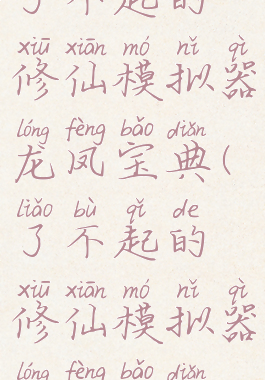 了不起的
xiū xiān mó nǐ qì
修仙模拟器
lóng fèng bǎo diǎn
龙凤宝典(
liǎo bù qǐ de
了不起的
xiū xiān mó nǐ qì
修仙模拟器
lóng fèng bǎo diǎn